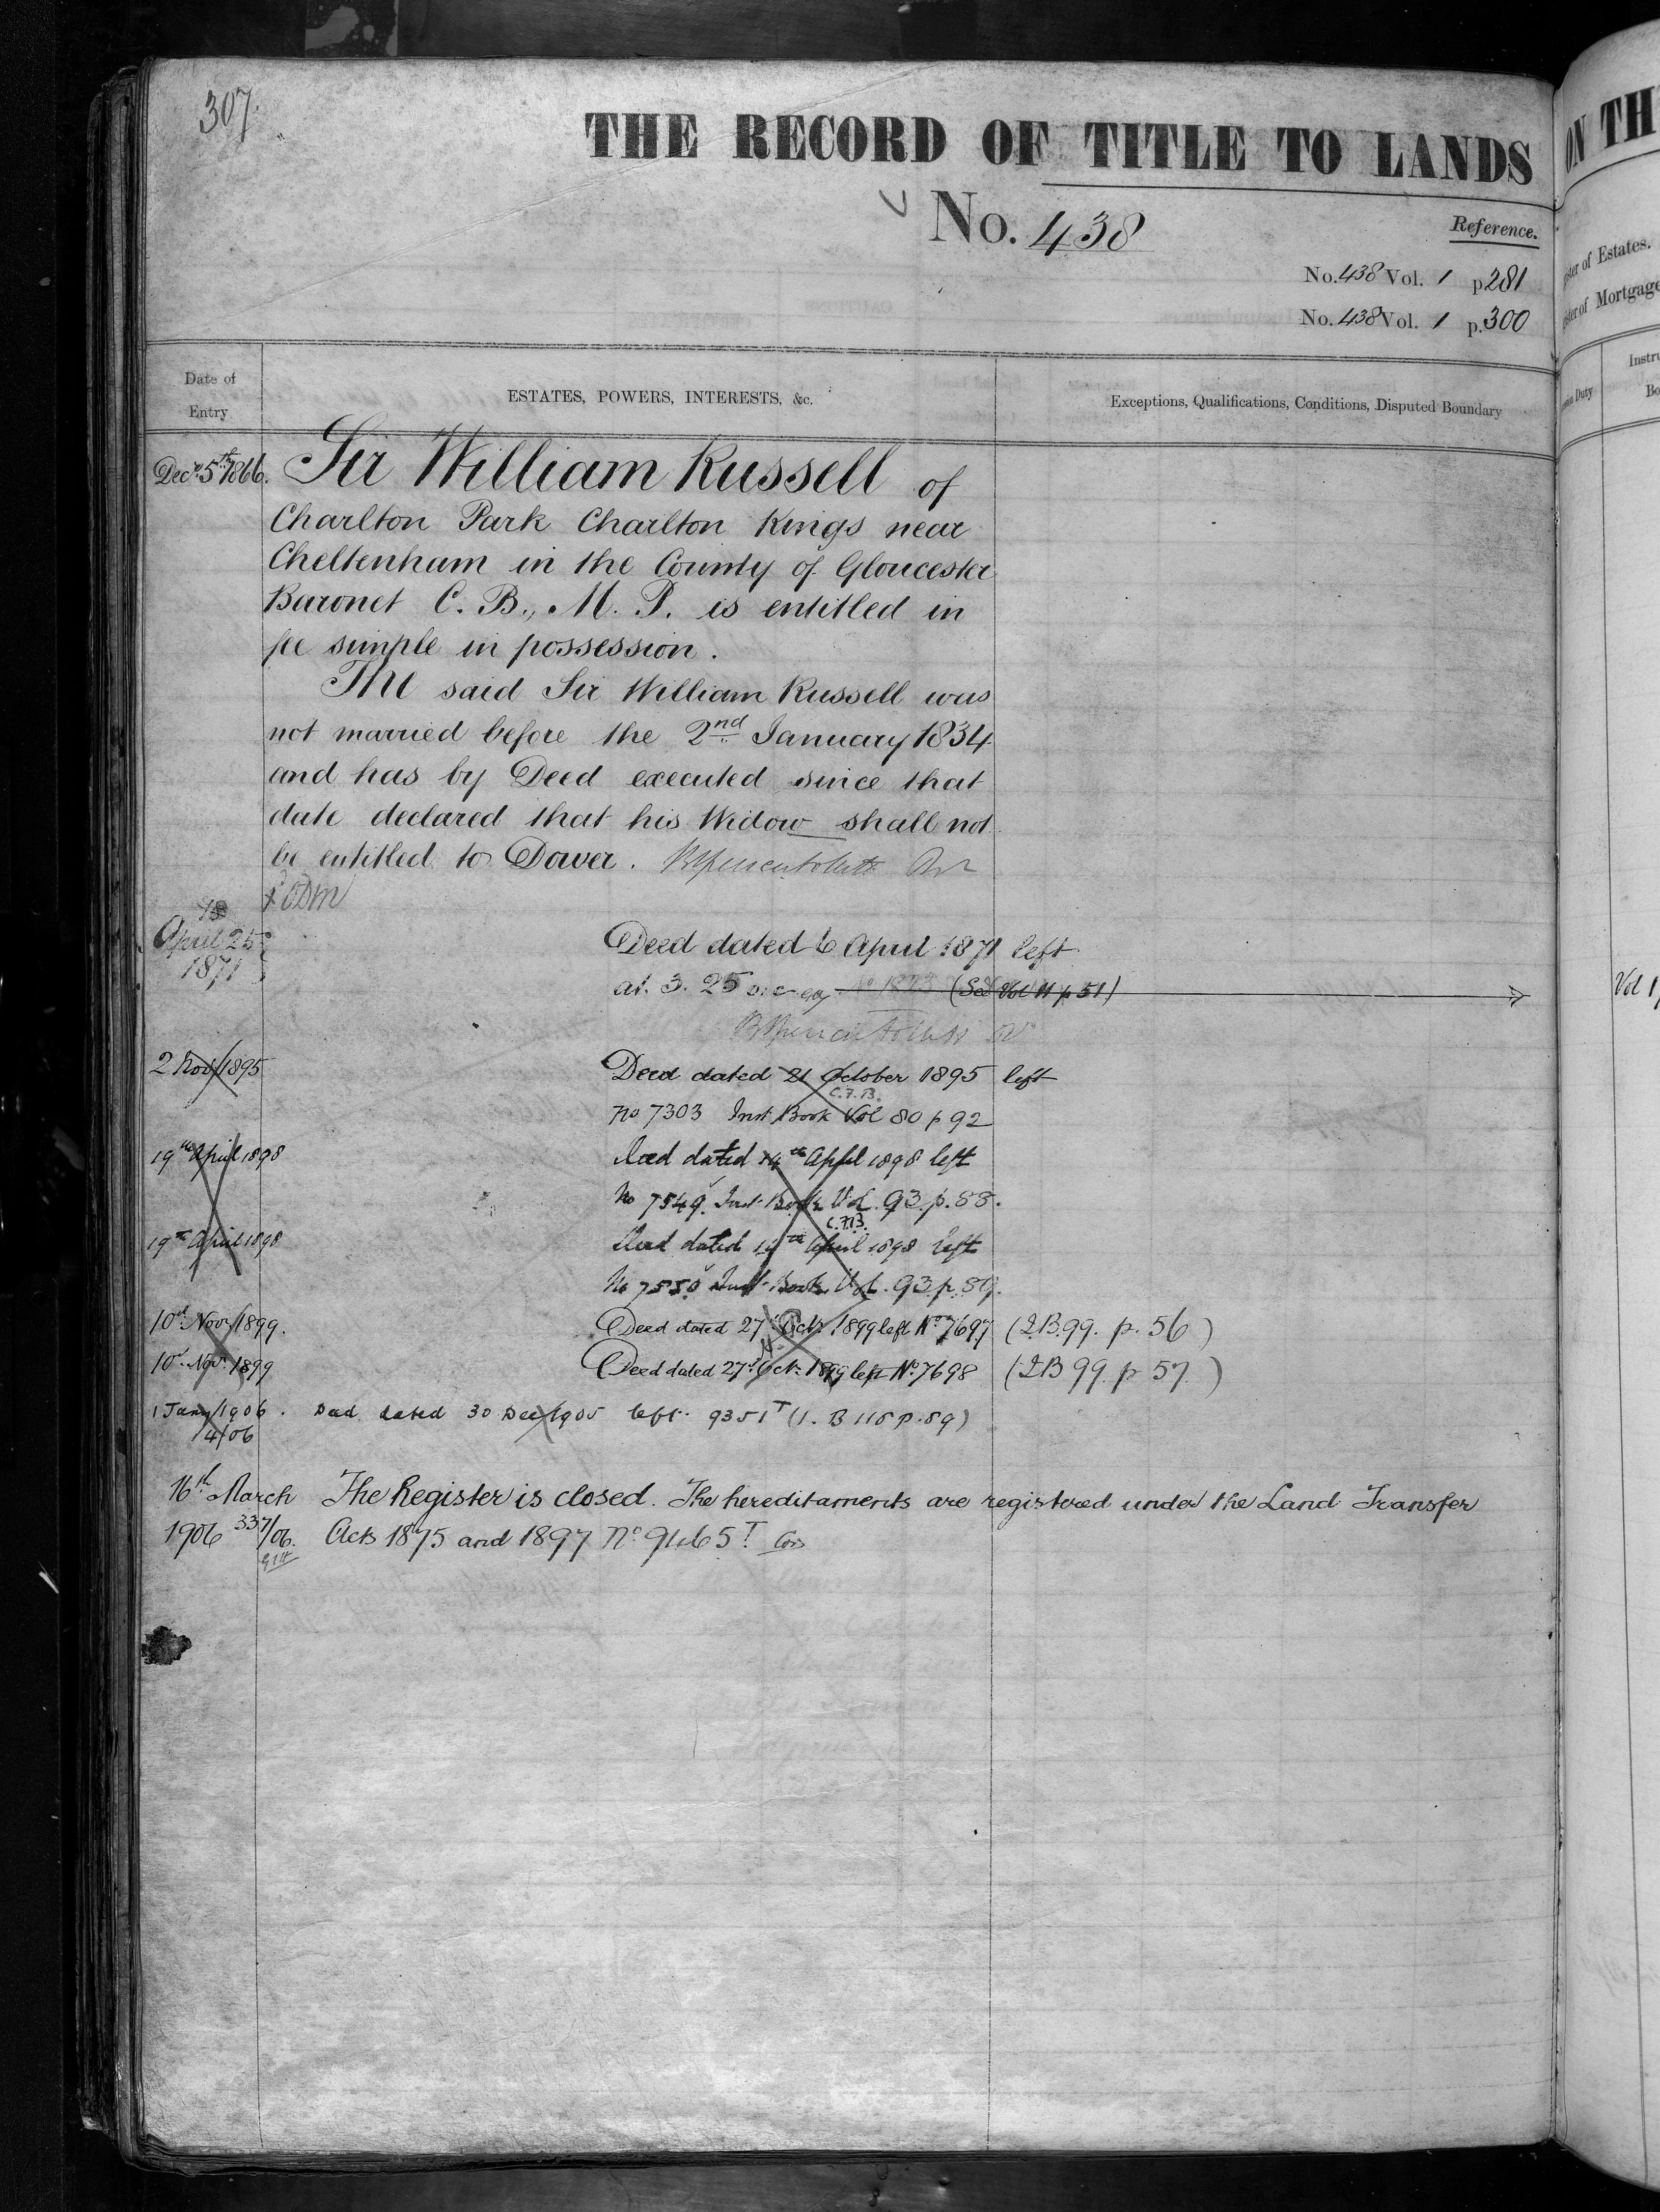 307.
THE RECORD OF TITLE TO LANDS
No. 438
Reference.
No. 438 Vol. 1 p 281
No. 438 Vol. 1 p. 300
Date of
Entry
ESTATES, POWERS, INTERESTS, &c.
Exceptions, Qualifications, Conditions, Disputed Boundary
Decr 5th 1866. Sir William Russell of
Charlton Park Charlton Kings near
Cheltenham in the County of Gloucester
Baronet C. B., M. P. is entitled in
fee simple in possession.
The said Sir William Russell was
not married before the 2nd January 1834
and has by Deed executed since that
date declared that his Widow shall not
be entitled to Dower.
April 25
1871
Deed dated 6 April 1871 left
at. 3. 25 (See Vol 11 p 51)
2 Nov/1895 Deed dated 21 October 1895 left
C.F.B.
No 7303 Inst. Book Vol 80 p 92
19th April 1898 Deed dated 14th April 1898 left
No 7549. Inst. Book Vol. 93. p. 88.
C.F.B.
19th April 1898 Deed dated 14th April 1898 left
No 7550 Inst. Book Vol. 93. p. 89.
10th Nov 1899. Deed dated 27th Octr. 1899 left No. 7697 (I.B. 99. p. 56)
10th Nov. 1899 Deed dated 27th Octr. 1899 left No. 7698 (I B 99. p 57.)
1 Jany 1906. Deed dated 30 Dec 1905 left. 9351T (I. B 118 p. 89)
4/06
16th March The Register is closed. The hereditaments are registered under the Land Transfer
1906 337/06. Acts 1875 and 1897 No 91465T
ON TH
Register of Estates.
Register of Mortgage
Instru
Bo
Duty
Vol 1